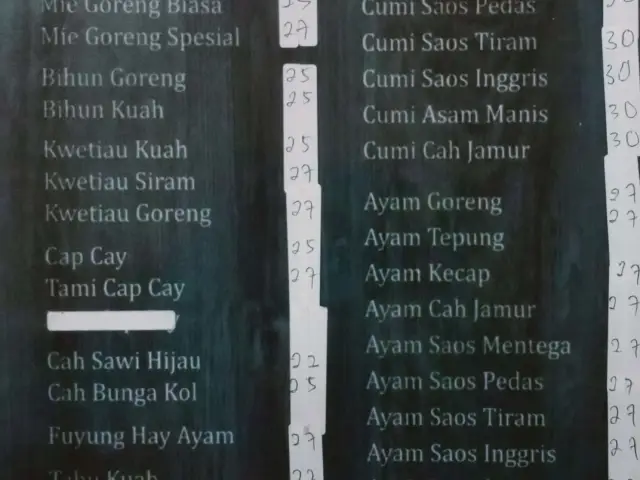 Mie Goreng Biasa 25
Mie Goreng Spesial 27
Bihun Goreng 25
Bihun Kuah 25
Kwetiau Kuah 25
Kwetiau Siram 27
Kwetiau Goreng 27
Cap Cay 25
Tami Cap Cay 27
Cah Sawi Hijau 22
Cah Bunga Kol 25
Fuyung Hay Ayam 27
Tahu Kuah 22
Cumi Saos Pedas
Cumi Saos Tiram 30
Cumi Saos Inggris 30
Cumi Asam Manis 30
Cumi Cah Jamur 30
Ayam Goreng 27
Ayam Tepung 27
Ayam Kecap 27
Ayam Cah Jamur 27
Ayam Saos Mentega 27
Ayam Saos Pedas 27
Ayam Saos Tiram 27
Ayam Saos Inggris 27